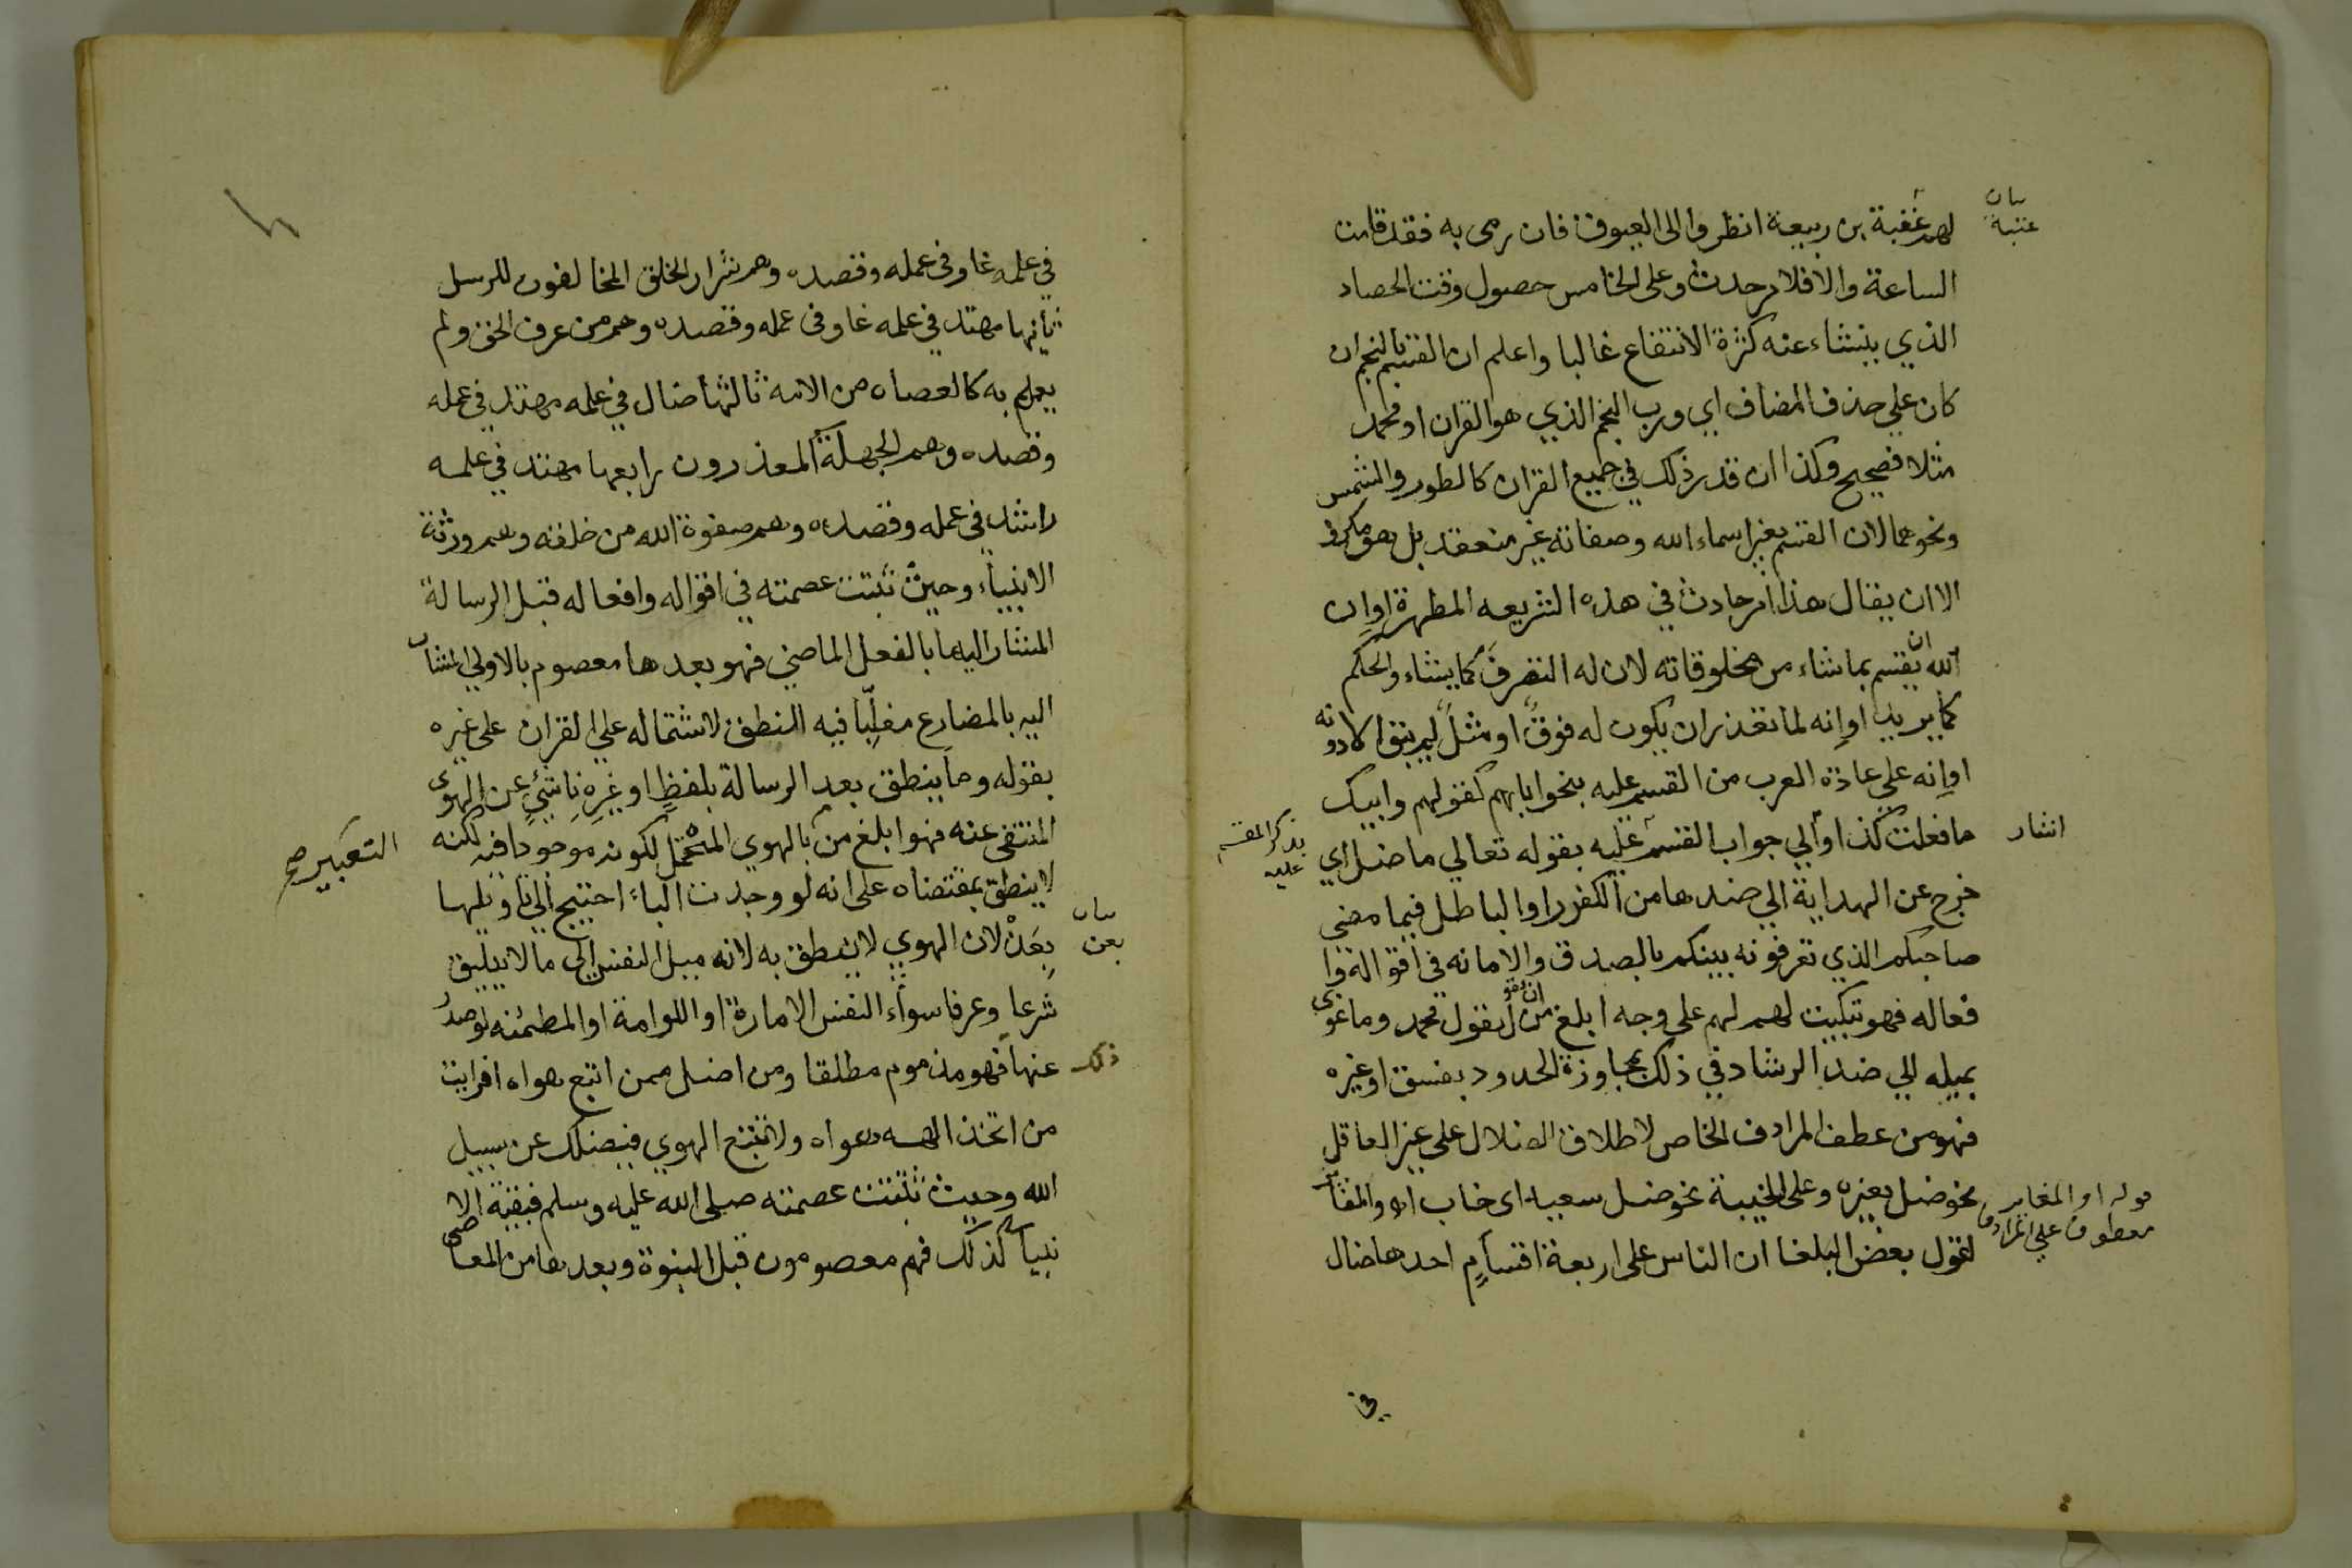 لهم عقبة بن ربيعة انظروا الى العيوق فان رمى به فقد قامت
بيان
عتبة
الساعة والا فلا امر حدث وعلى الخامس حصول وقت الحصاد
الذي ينشاء عنه كثرة الانتفاع غالبا واعلم ان القسم بالنجم ان
كان علي حذف المضاف اي ورب النجم الذي هو القران او محمد
مثلا فصحيح وكذا ان قدر ذلك في جميع القران كالطور والشمس
ونحوهما لان القسم بغير اسماء الله وصفاته غير منعقد بل هو مكروه
الا ان يقال هذا امر حادث في هذه الشريعه المطهرة او ان
الله ان يقسم بما شاء من مخلوقاته لان له التصرف كما يشاء والحكم
كما يريد او انه لما تعذر ان يكون له فوق او مثل لم يبق الا دونه
او انه علي عادة العرب من القسم عليه بنحو ابايهم كقولهم وابيك
ما فعلت كذا والي جواب القسم عليه بقوله تعالي ما ضل اي
اشار
بذكر المقسم
عليه
خرج عن الهداية الي ضدها من الكفر او الباطل فيما مضى
صاحبكم الذي تعرفونه بينكم بالصدق والامانه في اقواله وا
فعاله فهو تبكيت لهم لهم على وجه ابلغ من ان يقول محمد وما غوى
بميله الي ضد الرشاد في ذلك بمجاوزة الحدود بفسق او غيره
فهو من عطف المرادف الخاص لاطلاق الضلال على غير العاقل
نحو ضل بعيره وعلى الخيبة نحو ضل سعيه اى خاب او المغاير
قوله او المغاير
معطوف علي المرادف
لقول بعض البلغا ان الناس على اربعة اقسام احدها ضال
في
في علمه غاو في عمله وقصده وهم شرار الخلق المخالفون للرسل
ثانيها مهتد في علمه غاو في عمله وقصده وهم من عرف الحق ولم
يعمل به كالعصاه من الامة ثالثها ضال في علمه مهتد في عمله
وقصده وهم الجهلة المعذرون رابعها مهتد في علمه
راشد في عمله وقصده وهم صفوة الله من خلقه وهم ورثة
الانبياء وحيث ثبتت عصمته في اقواله وافعاله قبل الرسالة
المشار اليها بالفعل الماضي فهو بعدها معصوم بالاولي المشار
اليه بالمضارع مغلبا فيه النطق لاشتماله علي القران على غيره
بقوله وما ينطق بعد الرسالة بلفظ او غيره ناشئ عن الهوى
المنتفى عنه فهو ابلغ من بالهوي المحتمل لكونه موجودا فيه لكنه
التعبير صح
لا ينطق بمقتضاه على انه لو وجدت الباء احتيج الي تاويلها
بعن لان الهوي لا ينطق به لانه ميل النفس الى ما لا يليق
بيان
بعن
شرعا وعرفا سواء النفس الامارة او اللوامة او المطمئنه لو صدر
عنها فهو مذموم مطلقا ومن اضل ممن اتبع هواه افرايت
ذلك
من اتخذ الهه هواه ولا تتبع الهوي فيضلك عن سبيل
الله وحيث ثبتت عصمته صلى الله عليه وسلم فبقية الا
نبيا كذلك فهم معصومون قبل النبوة وبعدها من المعاصي